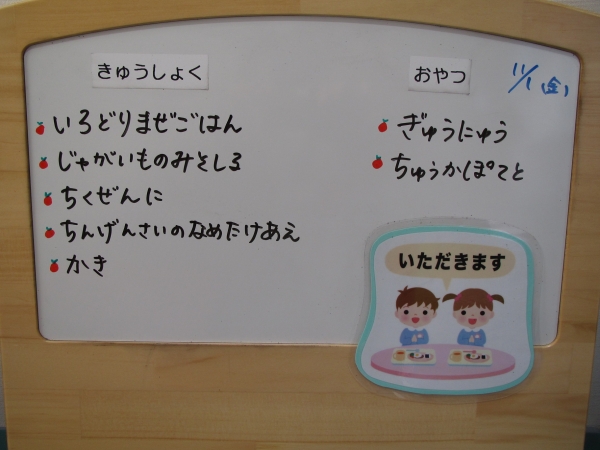 きゅうしょく
いろどりまぜごはん
じゃがいものみそしる
ちくぜんに
ちんげんさいのなめたけあえ
かき
おやつ
11/1(金)
ぎゅうにゅう
ちゅうかぽてと
いただきます